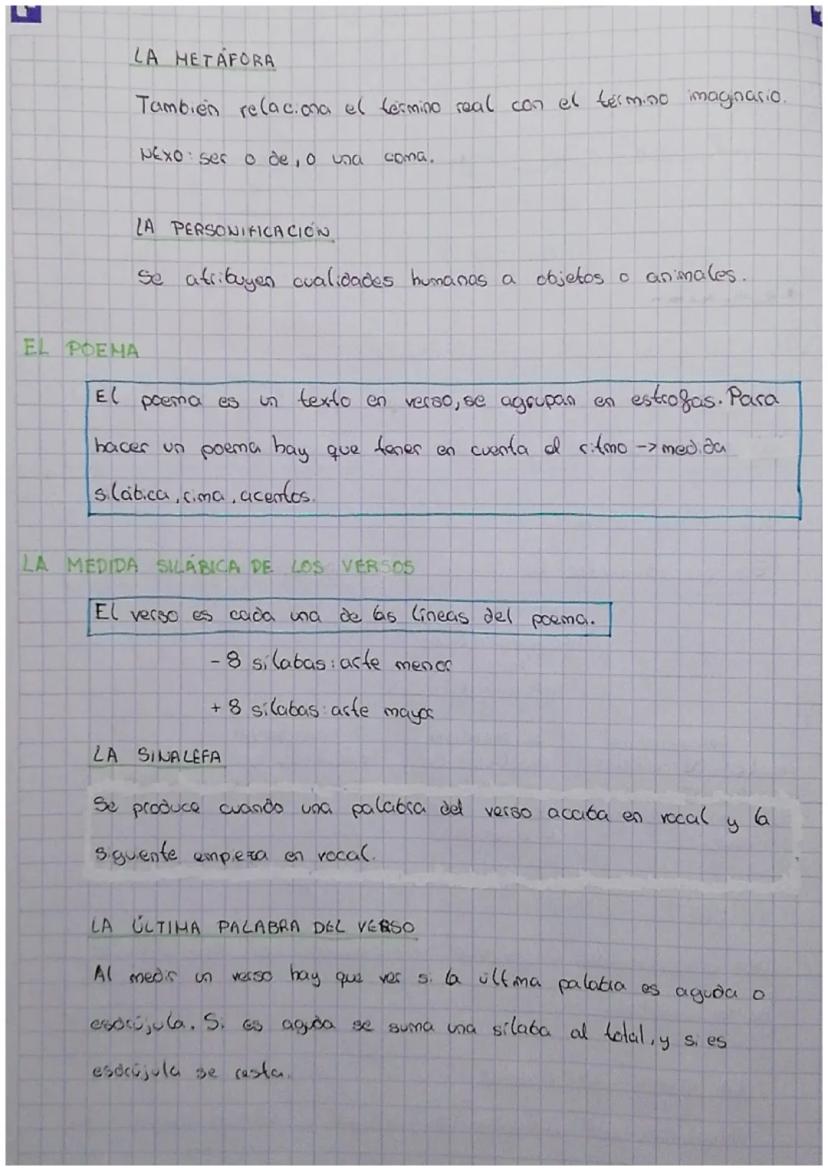 LA METÁFORA
También relaciona el término real con el término imaginario.
NEXO: ser o de, o una coma.
LA PERSONIFICACIÓN
Se atribuyen cualidades humanas a objetos o animales.
EL POEMA
El poema es un texto en verso, se agrupan en estrofas. Para
hacer un poema hay que tener en cuenta el ritmo -> medida
silábica, rima, acentos.
LA MEDIDA SILÁBICA DE LOS VERSOS
El verso es cada una de las líneas del poema.
- 8 sílabas: arte menor
+ 8 sílabas: arte mayor
LA SINALEFA
Se produce cuando una palabra del verso acaba en vocal y la
siguente empieza en vocal.
LA ÚLTIMA PALABRA DEL VERSO
Al medir un verso hay que ver si la última palabra es aguda o
esdrújula. Si es aguda se suma una sílaba al total, y si es
esdrújula se resta.